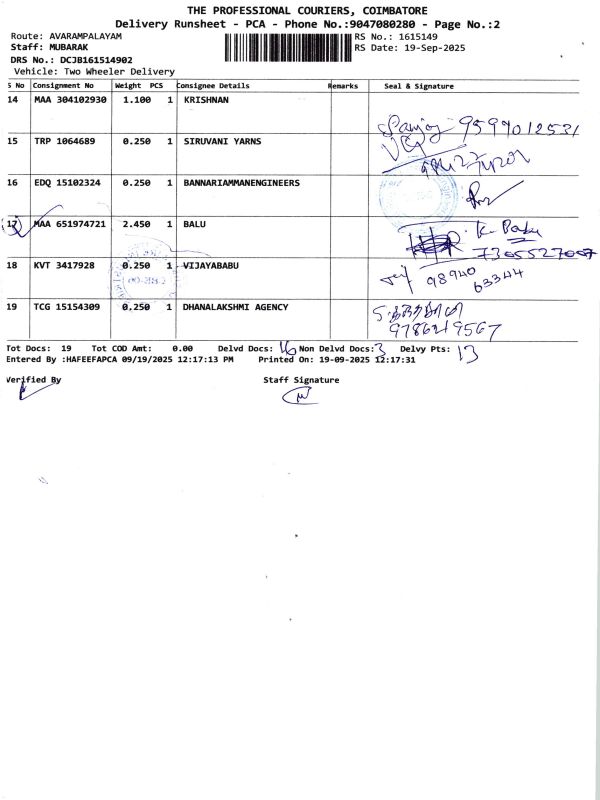 THE PROFESSIONAL COURIERS, COIMBATORE
Delivery Runsheet - PCA - Phone No.:9047080280 - Page No.:2
Route: AVARAMPALAYAM RS No.: 1615149
Staff: MUBARAK RS Date: 19-Sep-2025
DRS No.: DCJB161514902
Vehicle: Two Wheeler Delivery
S No Consignment No Weight PCS Consignee Details Remarks Seal & Signature
14 MAA 304102930 1.100 1 KRISHNAN
Sanjoy 9599012531
15 TRP 1064689 0.250 1 SIRUVANI YARNS
16 EDQ 15102324 0.250 1 BANNARIAMMANENGINEERS
17 MAA 651974721 2.450 1 BALU K. Babu
7305527007
18 KVT 3417928 0.250 1 VIJAYABABU 98940
63344
19 TCG 15154309 0.250 1 DHANALAKSHMI AGENCY
9786219567
Tot Docs: 19 Tot COD Amt: 0.00 Delvd Docs: 16 Non Delvd Docs:3 Delvy Pts: 13
Entered By :HAFEEFAPCA 09/19/2025 12:17:13 PM Printed On: 19-09-2025 12:17:31
Verified By Staff Signature